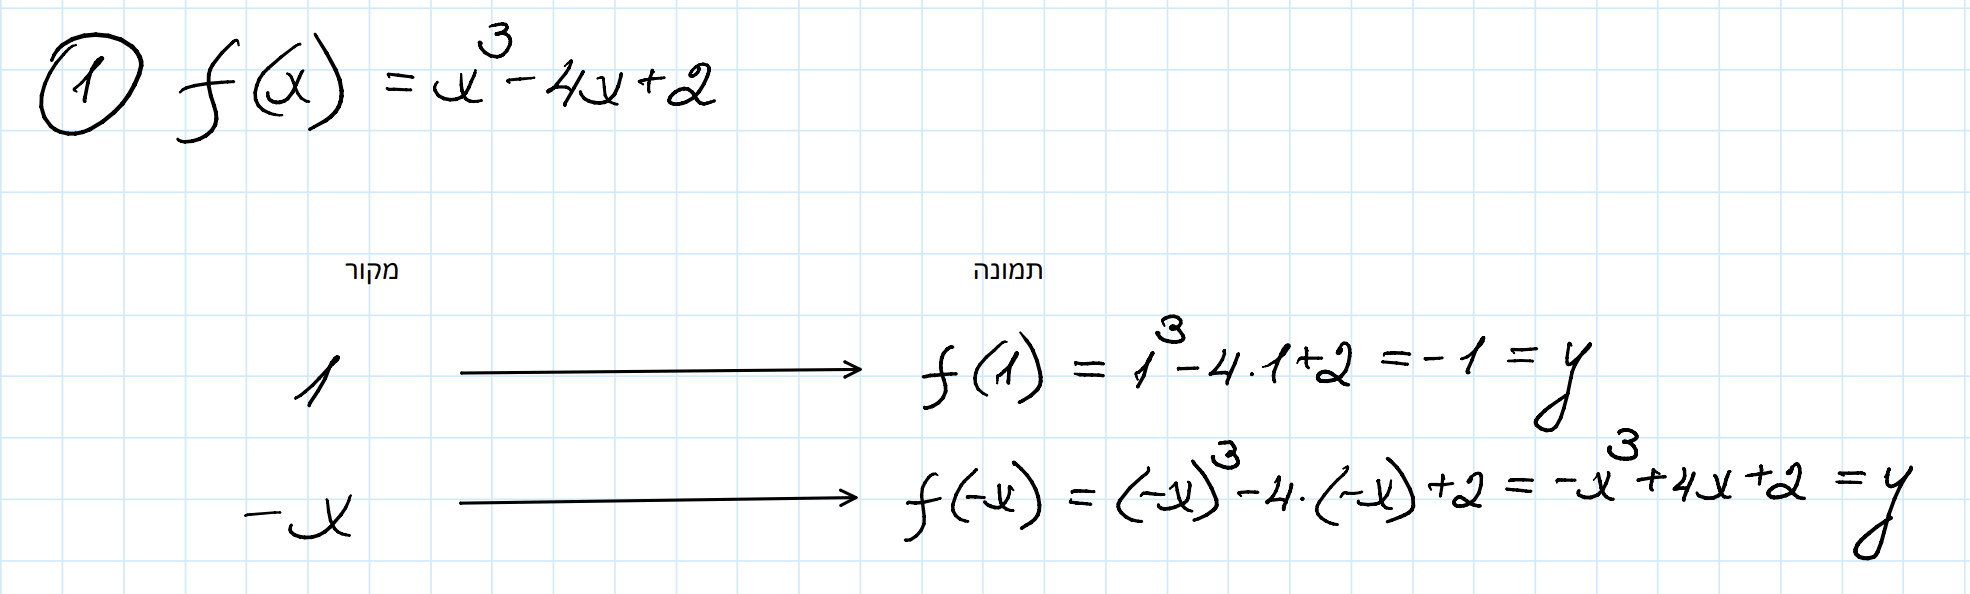 ① f(x) = x³ - 4x + 2
מקור תמונה
1 → f(1) = 1³ - 4·1 + 2 = -1 = y
-x → f(-x) = (-x)³ - 4·(-x) + 2 = -x³ + 4x + 2 = y